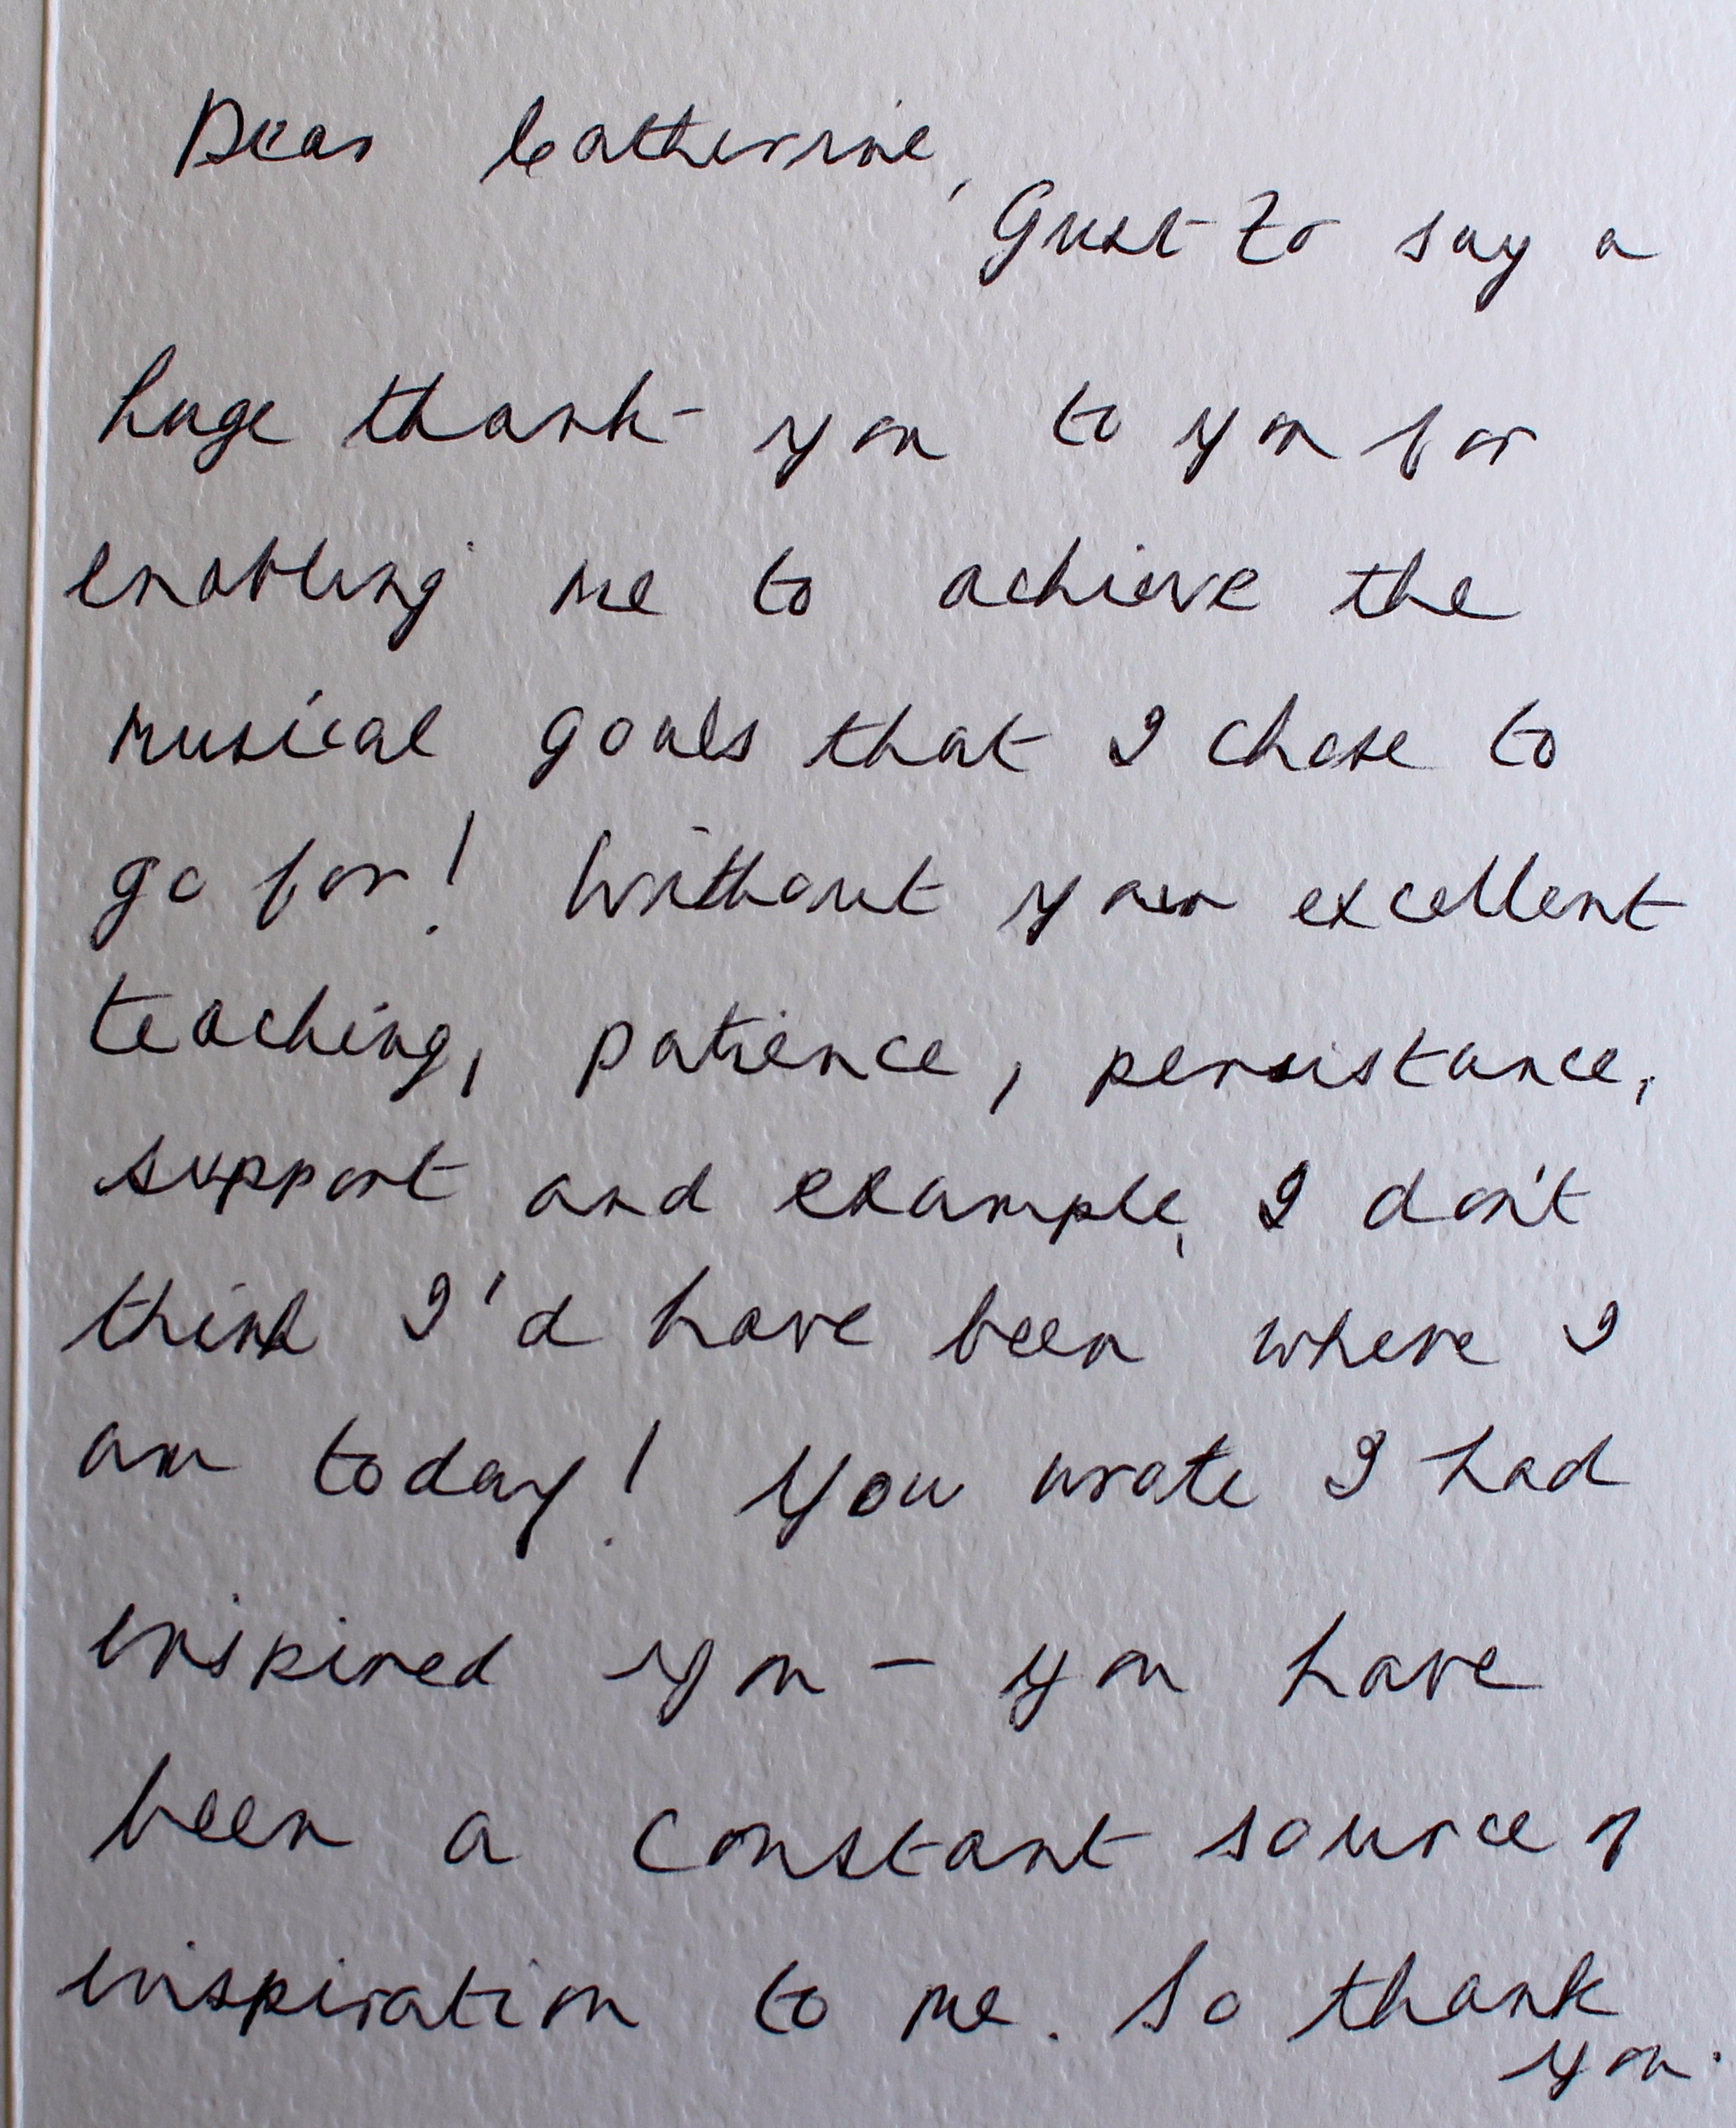 Dear Catherine,
Just to say a
huge thank-you to you for
enabling me to achieve the
musical goals that I chose to
go for! Without your excellent
teaching, patience, persistance,
support and example, I don't
think I'd have been where I
am today! You wrote I had
inspired you - you have
been a constant source of
inspiration to me. So thank
you.